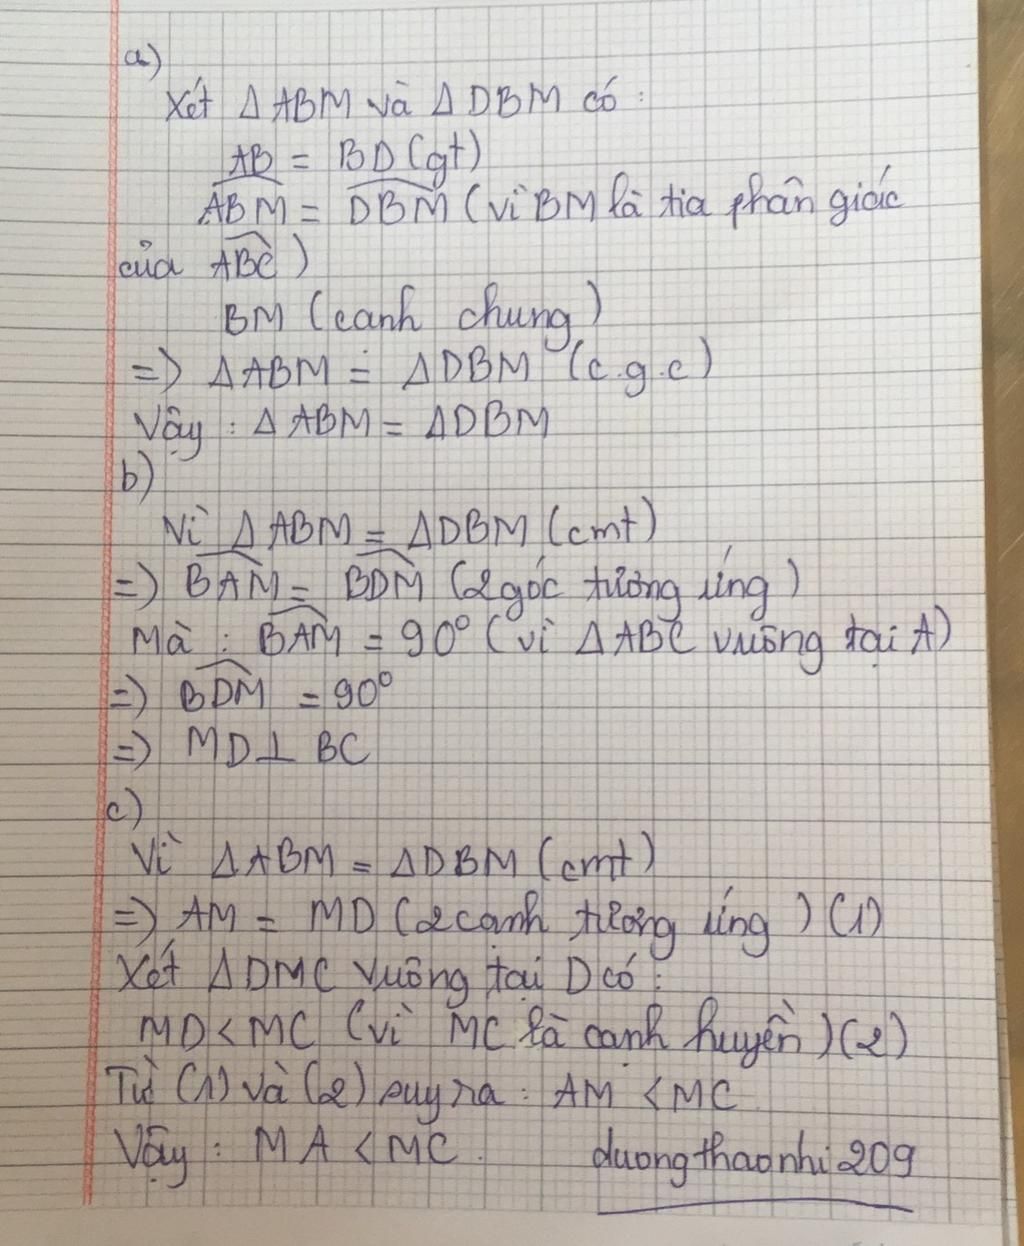 a)
Xét Δ ABM và Δ DBM có :
AB = BD (gt)
\widehat{ABM} = \widehat{DBM} (vì BM là tia phân giác
của \widehat{ABC})
BM (cạnh chung)
=> Δ ABM = Δ DBM (c.g.c)
Vậy : Δ ABM = Δ DBM
b)
Vì Δ ABM = Δ DBM (cmt)
=> \widehat{BAM} = \widehat{BDM} (2 góc tương ứng)
Mà : \widehat{BAM} = 90° (vì Δ ABC vuông tại A)
=> \widehat{BDM} = 90°
=> MD ⊥ BC
c)
Vì Δ ABM = Δ DBM (cmt)
=> AM = MD (2 cạnh tương ứng) (1)
Xét Δ DMC vuông tại D có :
MD < MC (vì MC là cạnh huyền) (2)
Từ (1) và (2) suy ra : AM < MC
Vậy : MA < MC.
duongthaonhi209